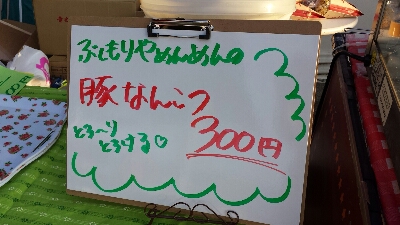 ぶともりやめんめんの
豚なんこつ
とろ〜り
とろける♡
300円